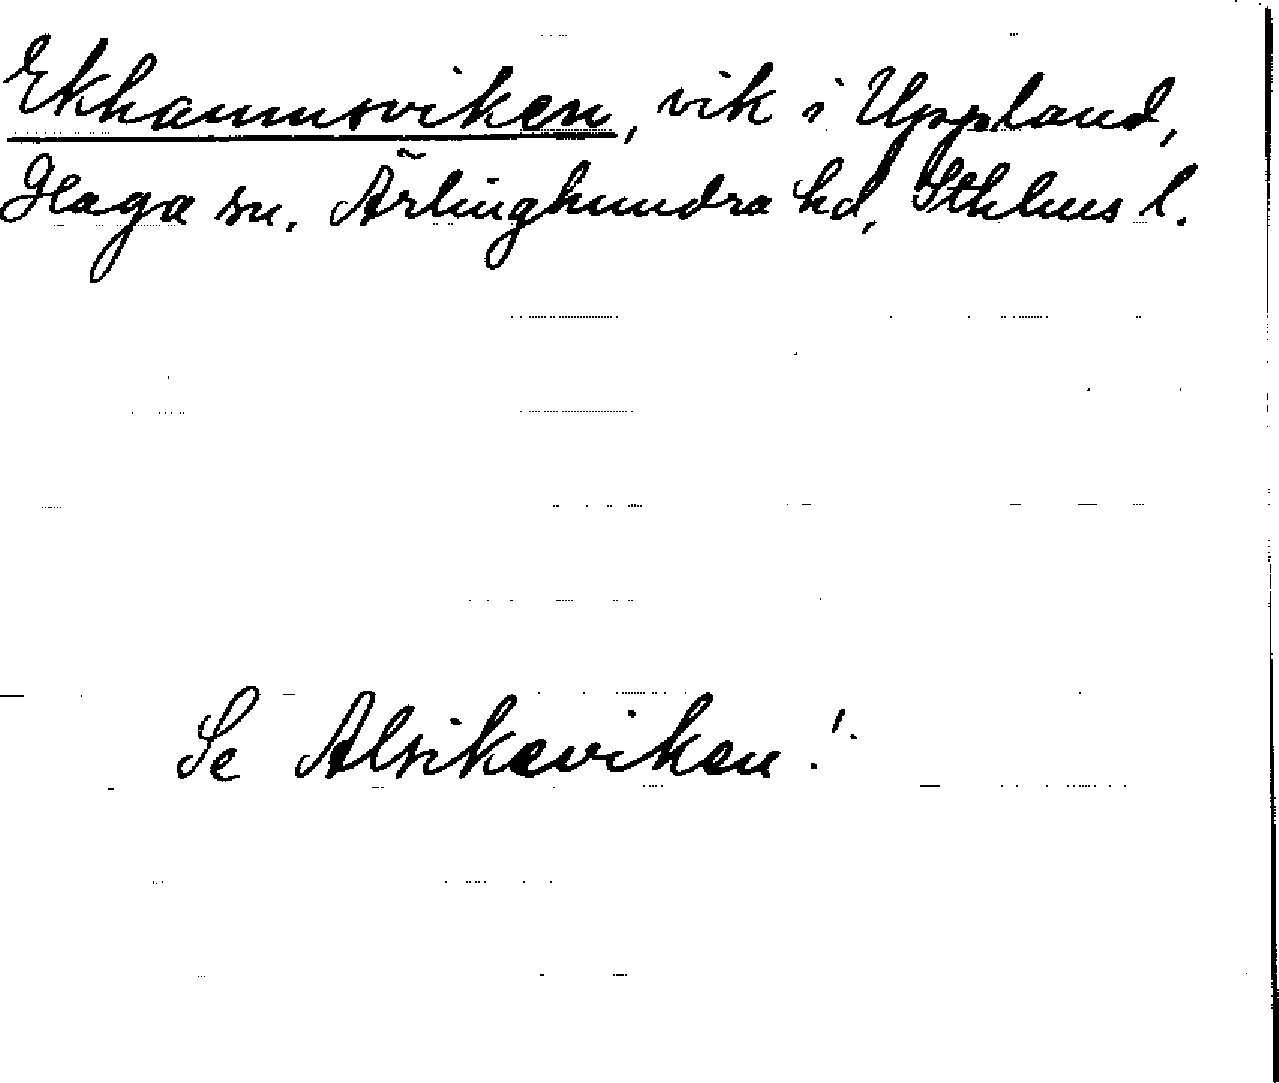 Ekhamnsviken, vik i Uppland,
Haga sn, Ärlinghundra hd, Sthlms l.
Se Alsikeviken!